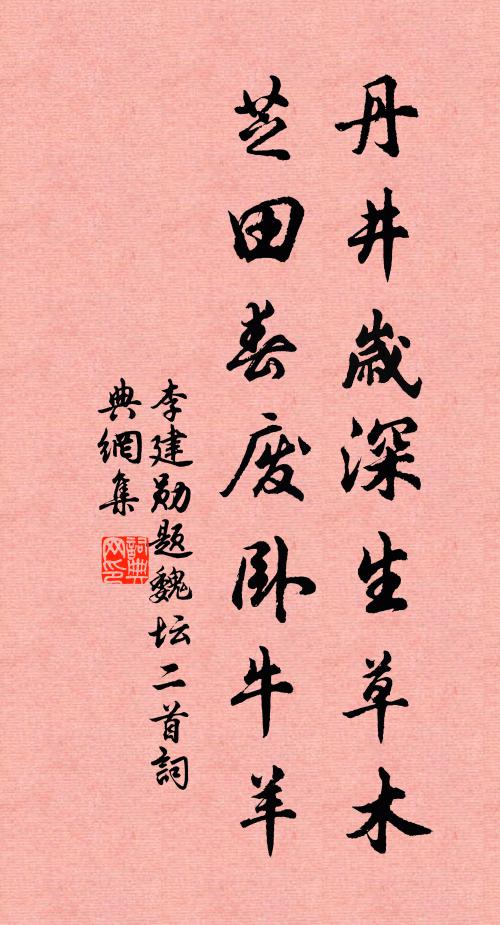 丹井歲深生草木
芝田春废卧牛羊
李建勋题魏坛二首詞
典網集
詞典
网印